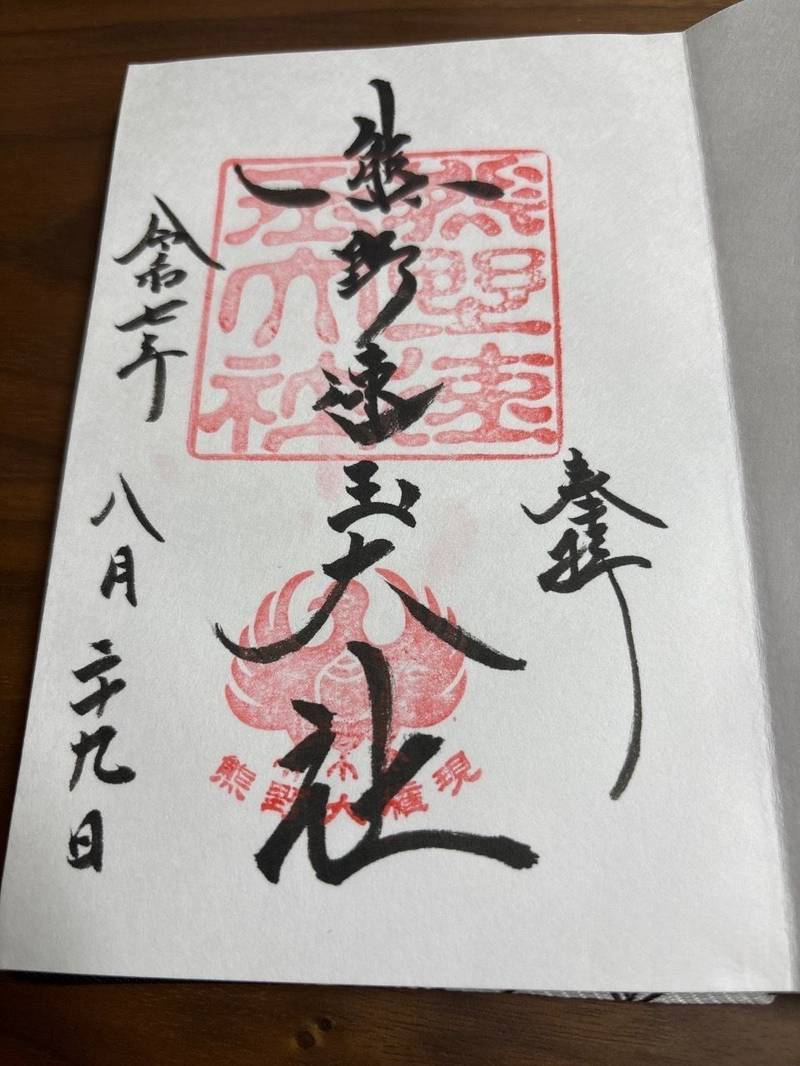 奉拝
熊野速玉大社
令和七年
八月二十九日
熊野速玉大社
熊野大権現